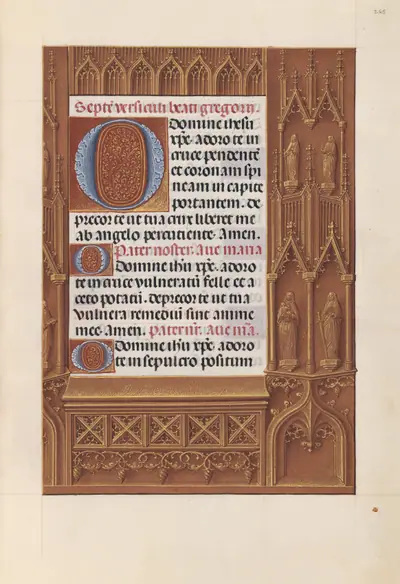 265
Septē versiculi beati gregorii
O Domine ihesu
xpē. adoro te in
cruce pendentē
et coronam spi
neam in capite
portantem. de
precor te ut tua crux liberet me
ab angelo percutiente. Amen.
Pater noster. Aue maria
O Domine ihū xpē. adoro
te in cruce vulneratū felle et a
ceto potatū. deprecor te ut tua
vulnera remediū sint anime
mee. Amen. Pater nr̄. Aue m̄a.
O Domine ihū xpē. adoro
te in sepulcro positum